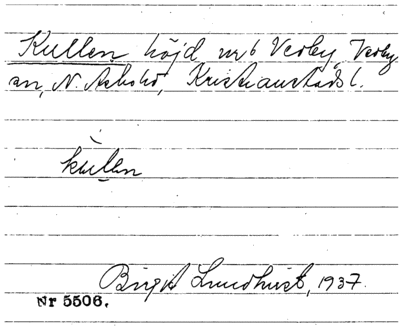 Kullen, höjd nr 6 Verby, Verby
sn, N. Åsbo hd, Kristianstads l.
kulen
Birgit Lundkvist, 1937.
Nr 5506.